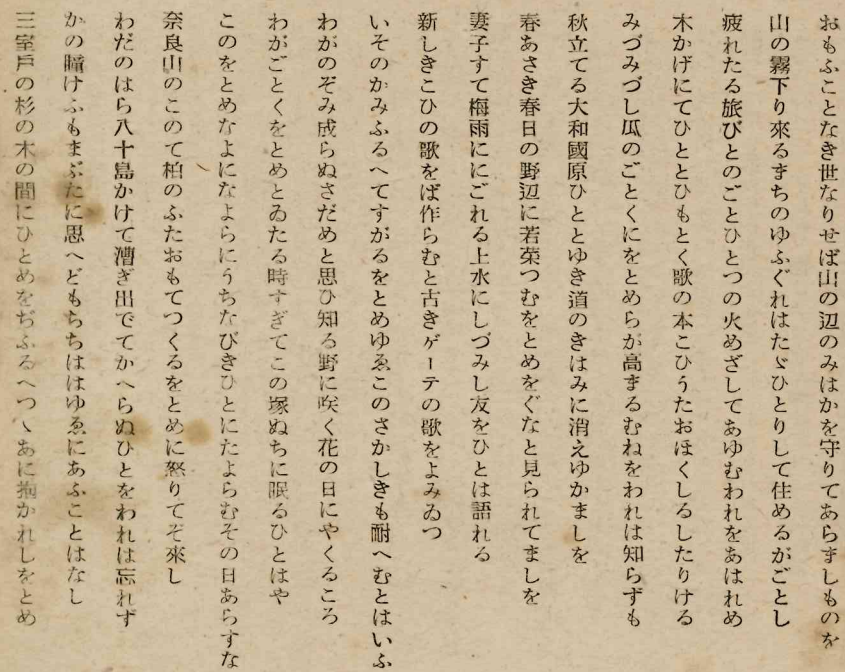 おもふことなき世なりせば山の辺のみはかを守りてあらましものを
山の霧下り來るまちのゆふぐれはたゞひとりして住めるがごとし
疲れたる旅びとのごとひとつの火めざしてあゆむわれをあはれめ
木かげにてひととひもとく歌の本こひうたおほくしるしたりける
みづみづし瓜のごとくにをとめらが高まるむねをわれは知らずも
秋立てる大和國原ひととゆき道のきはみに消えゆかましを
春あさき春日の野辺に若菜つむをとめをぐなと見られてましを
妻子すて梅雨ににごれる上水にしづみし友をひとは語れる
新しきこひの歌をば作らむと古きゲーテの歌をよみゐつ
いそのかみふるへてすがるをとめゆゑこのさかしきも耐へむとはいふ
わがのぞみ成らぬさだめと思ひ知る野に咲く花の日にやくるころ
わがごとくをとめとゐたる時すぎてこの塚ぬちに眠るひとはや
このをとめなよになよらにうちなびきひとにたよらむその日あらすな
奈良山のこのて柏のふたおもてつくるをとめに怒りてぞ來し
わだのはら八十島かけて漕ぎ出でてかへらぬひとをわれは忘れず
かの瞳けふもまぶたに思へどもちちははゆゑにあふことはなし
三室戸の杉の木の間にひとめをぢふるへつゝあに抱かれしをとめ